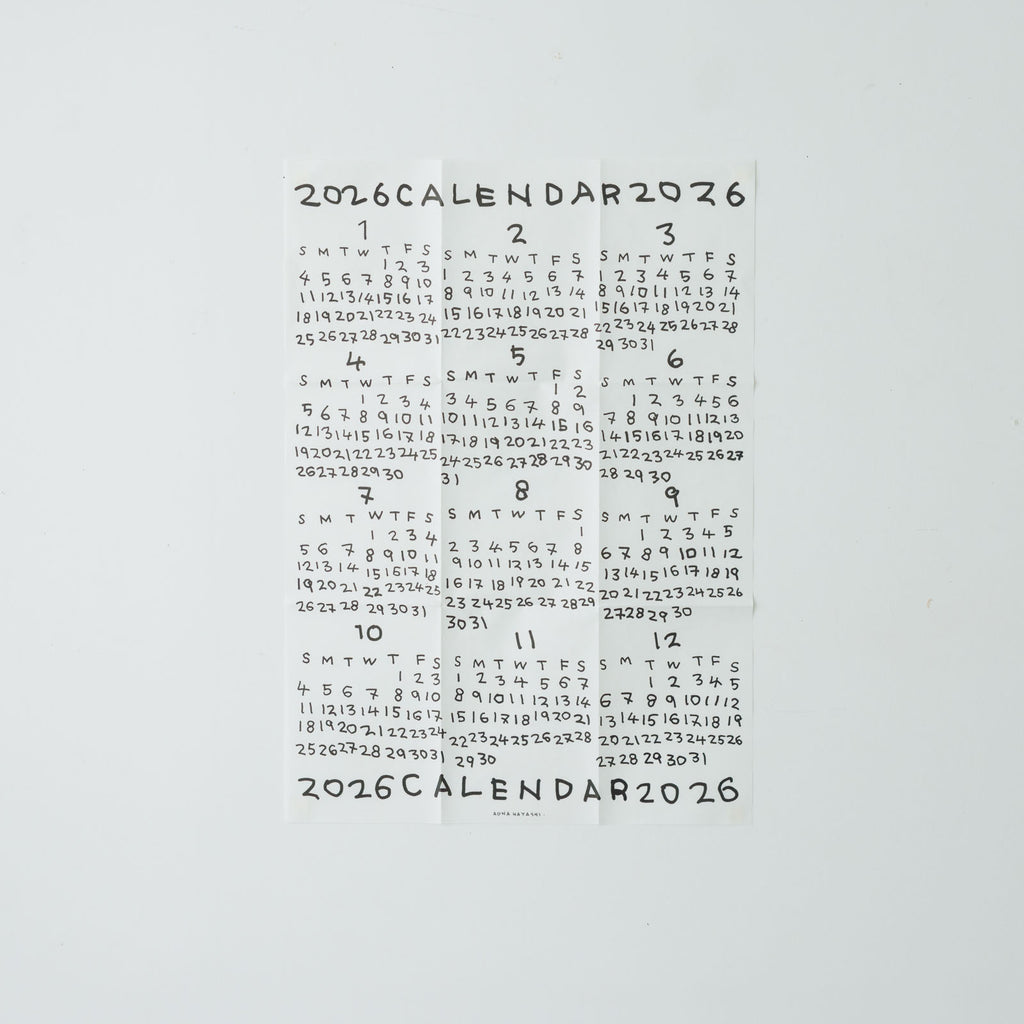 2026CALENDAR2026
1
S M T W T F S
1 2 3
4 5 6 7 8 9 10
11 12 13 14 15 16 17
18 19 20 21 22 23 24
25 26 27 28 29 30 31
2
S M T W T F S
1 2 3 4 5 6 7
8 9 10 11 12 13 14
15 16 17 18 19 20 21
22 23 24 25 26 27 28
3
S M T W T F S
1 2 3 4 5 6 7
8 9 10 11 12 13 14
15 16 17 18 19 20 21
22 23 24 25 26 27 28
29 30 31
4
S M T W T F S
1 2 3 4
5 6 7 8 9 10 11
12 13 14 15 16 17 18
19 20 21 22 23 24 25
26 27 28 29 30
5
S M T W T F S
1 2
3 4 5 6 7 8 9
10 11 12 13 14 15 16
17 18 19 20 21 22 23
24 25 26 27 28 29 30
31
6
S M T W T F S
1 2 3 4 5 6
7 8 9 10 11 12 13
14 15 16 17 18 19 20
21 22 23 24 25 26 27
28 29 30
7
S M T W T F S
1 2 3 4
5 6 7 8 9 10 11
12 13 14 15 16 17 18
19 20 21 22 23 24 25
26 27 28 29 30 31
8
S M T W T F S
1
2 3 4 5 6 7 8
9 10 11 12 13 14 15
16 17 18 19 20 21 22
23 24 25 26 27 28 29
30 31
9
S M T W T F S
1 2 3 4 5
6 7 8 9 10 11 12
13 14 15 16 17 18 19
20 21 22 23 24 25 26
27 28 29 30
10
S M T W T F S
1 2 3
4 5 6 7 8 9 10
11 12 13 14 15 16 17
18 19 20 21 22 23 24
25 26 27 28 29 30 31
11
S M T W T F S
1 2 3 4 5 6 7
8 9 10 11 12 13 14
15 16 17 18 19 20 21
22 23 24 25 26 27 28
29 30
12
S M T W T F S
1 2 3 4 5
6 7 8 9 10 11 12
13 14 15 16 17 18 19
20 21 22 23 24 25 26
27 28 29 30 31
2026CALENDAR2026
HAYASHI